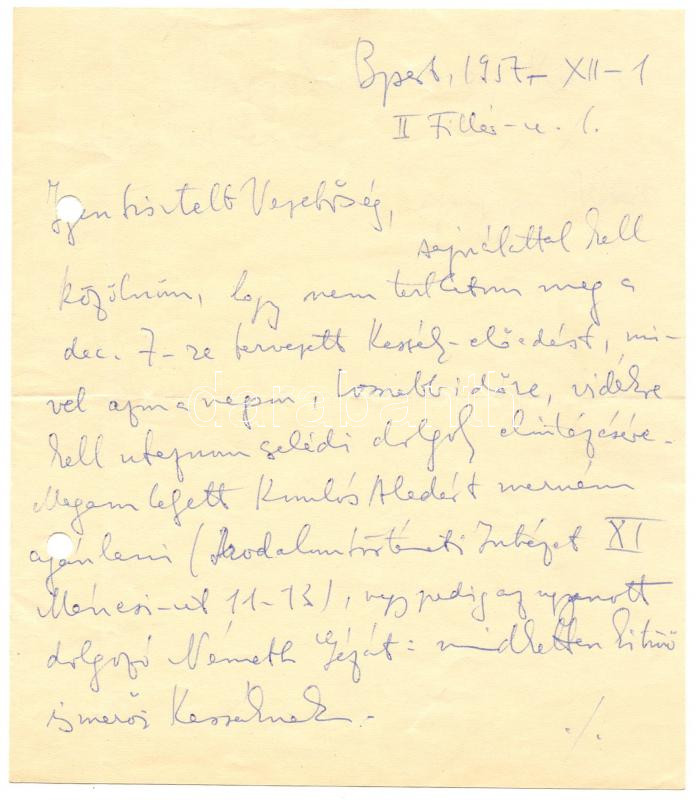 Bpest, 1957 – XII – 1
II Fillér-u. 
Igen tisztelt Vezetőség,
sajnálattal kell
közölnöm, hogy nem tarthatom meg a
dec. 7-re tervezett előadást, mi-
vel aznap, hosszabb időre, vidékre
kell utaznom családi dolgok elintézésére.
Magam helyett Komlós Aladárt merném
ajánlani (Irodalomtörténeti Intézet XI
Ménesi-út 11-13), vagy pedig az ugyanott
dolgozó Németh Gézát: mindketten kitűnő
ismerői
./.
darabanth